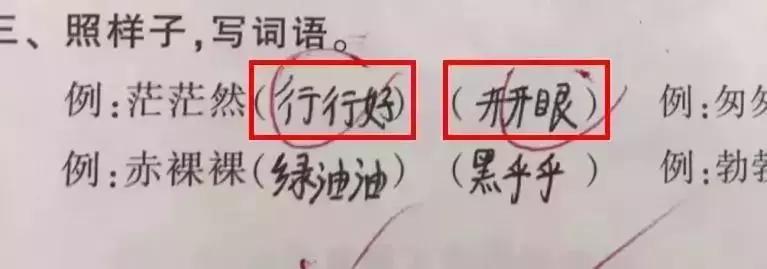 三、照样子,写词语。
例:茫茫然(行行好) (开开眼) 例:匆匆
例:赤裸裸(绿油油) (黑乎乎) 例:勃勃